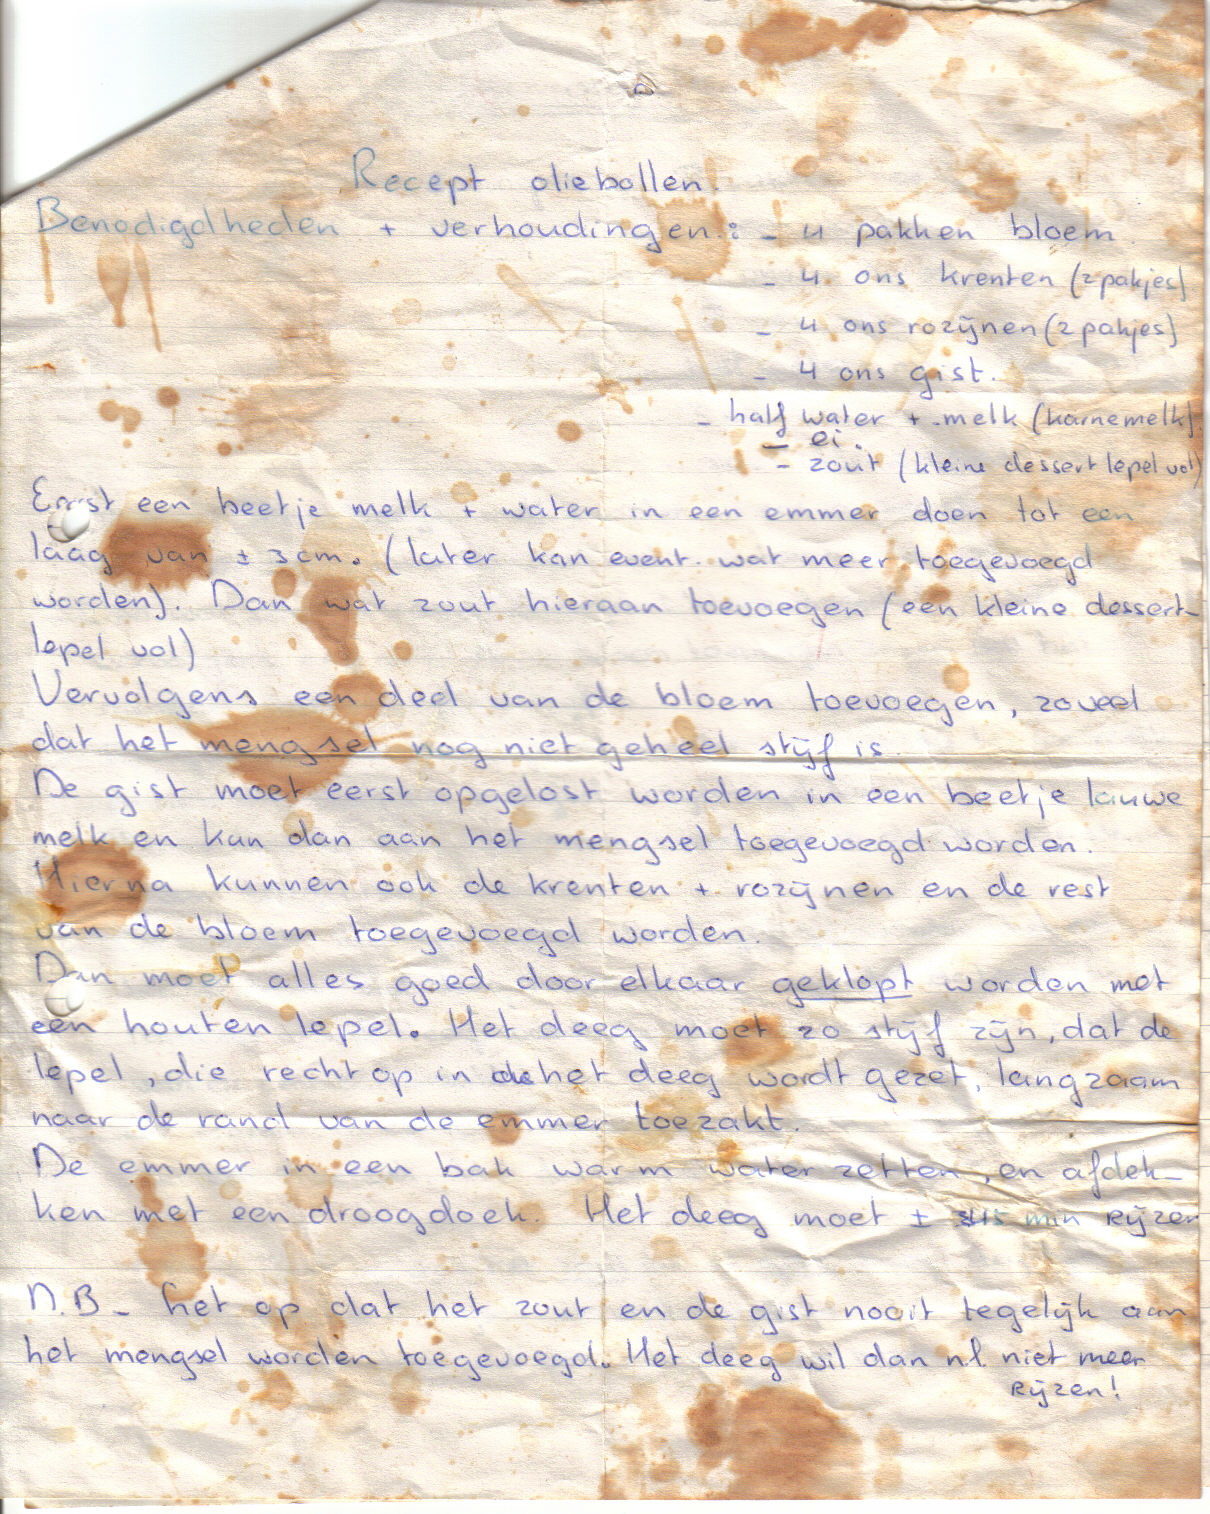 Recept oliebollen.
Benodigdheden + verhoudingen.: - 4 pakken bloem
- 4 ons krenten (2 pakjes)
- 4 ons rozijnen (2 pakjes)
- 4 ons gist.
- half water + melk (karnemelk).
- ei.
- zout (kleine dessertlepel vol)
Eerst een beetje melk + water in een emmer doen tot een
laag van ± 3 cm. (later kan event. wat meer toegevoegd
worden). Dan wat zout hieraan toevoegen (een kleine dessert-
lepel vol)
Vervolgens een deel van de bloem toevoegen, zoveel
dat het mengsel nog niet geheel stijf is.
De gist moet eerst opgelost worden in een beetje lauwe
melk en kan dan aan het mengsel toegevoegd worden.
Hierna kunnen ook de krenten + rozijnen en de rest
van de bloem toegevoegd worden.
Dan moet alles goed door elkaar geklopt worden met
een houten lepel. Het deeg moet zo stijf zijn, dat de
lepel, die recht op in het deeg wordt gezet, langzaam
naar de rand van de emmer toezakt.
De emmer in een bak warm water zetten, en afdek-
ken met een droogdoek. Het deeg moet ± 45 min Rijzen
N.B - Let op dat het zout en de gist nooit tegelijk aan
het mengsel worden toegevoegd.. Het deeg wil dan n.l. niet meer
Rijzen!